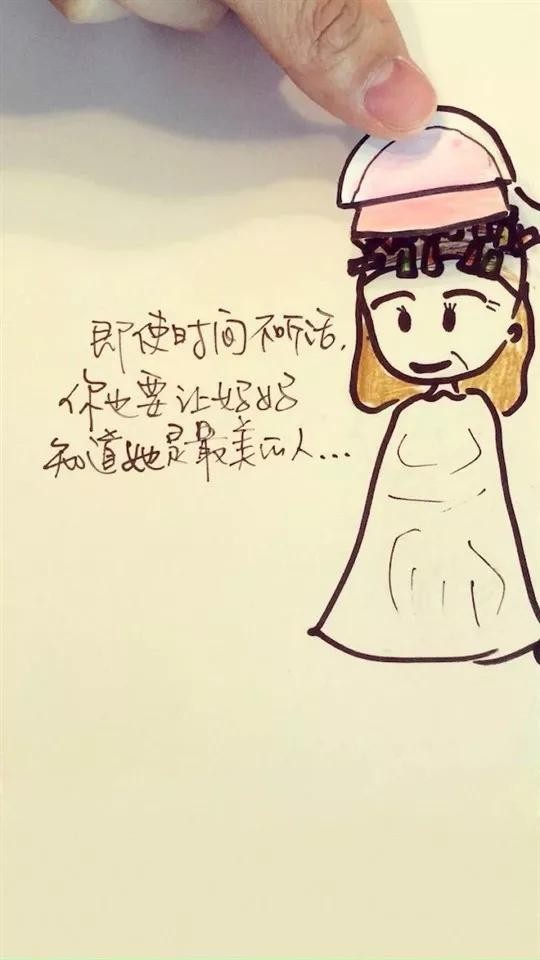 即使时间不听话,
你也要让妈妈
知道她是最美的人...